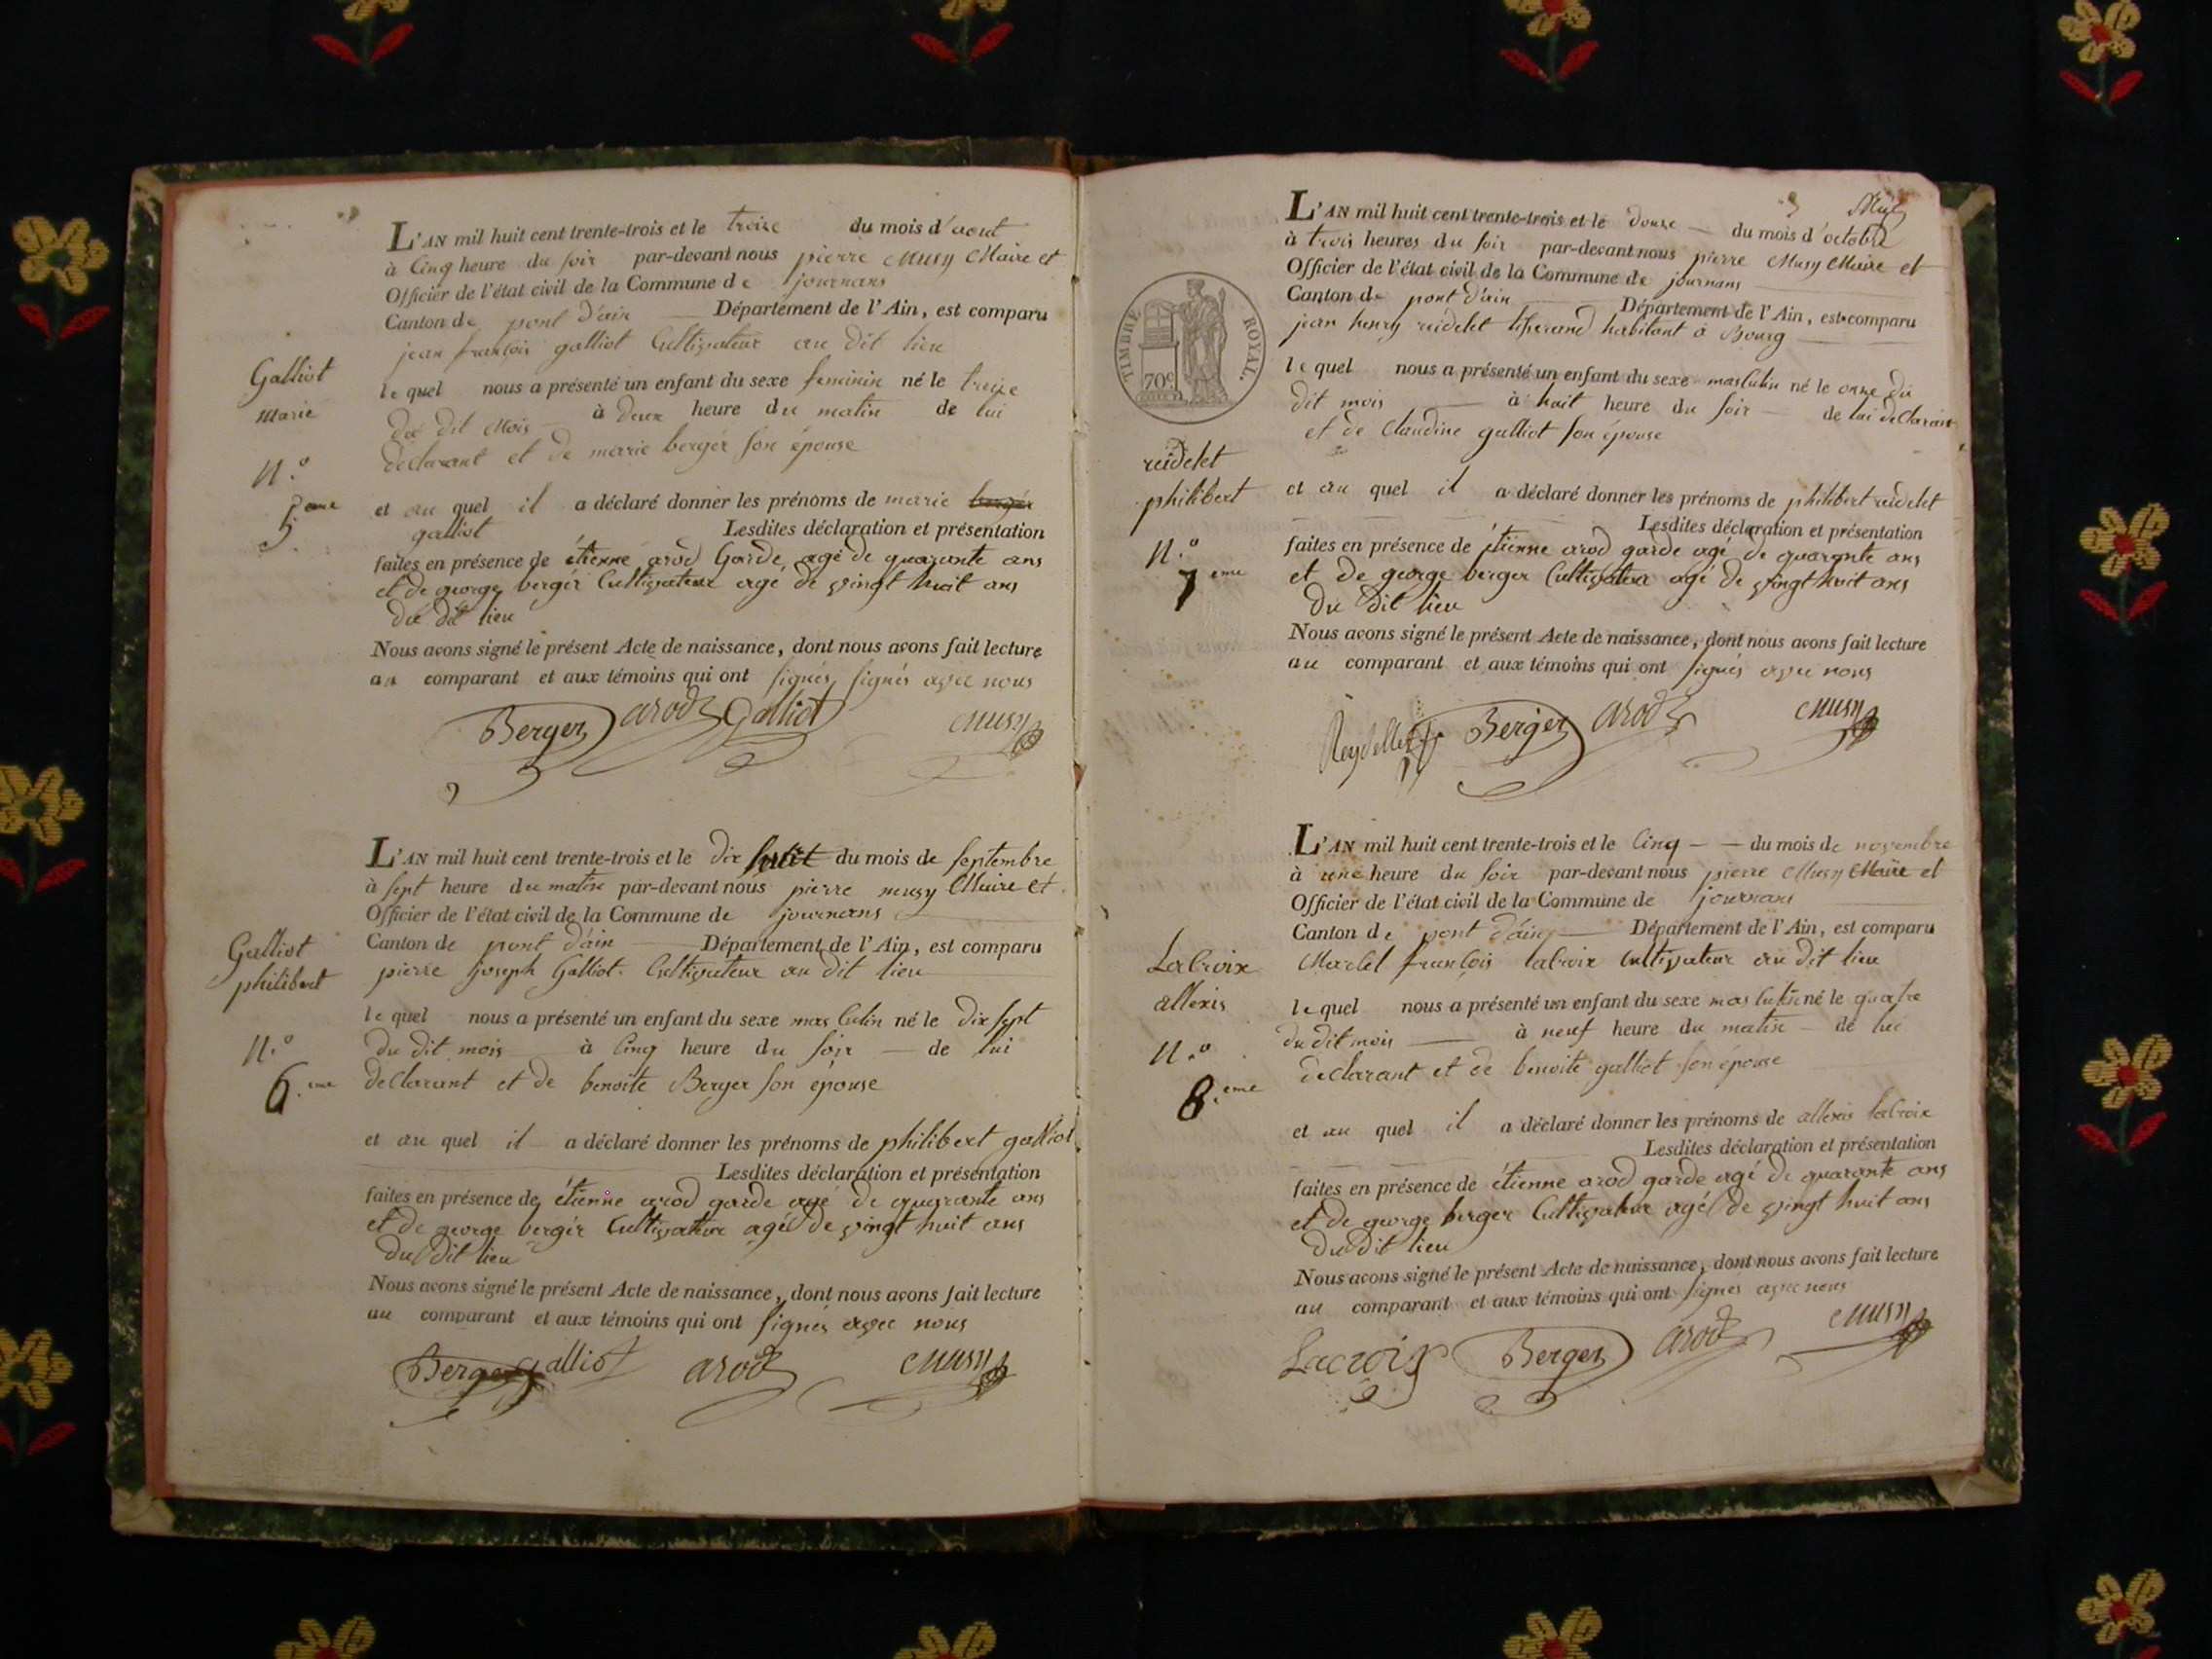 L'AN mil huit cent trente-trois et le treize du mois d'aout
à Cinq heure du soir par-devant nous pierre Musy Maire et
Officier de l'état civil de la Commune de journans
Canton de pont d'ain Département de l'Ain, est comparu
jean françois galliot Cultivateur au dit lieu
Galliot
marie
N.o
5eme
le quel nous a présenté un enfant du sexe feminin né le treize
du dit Mois à deux heure du matin de lui
declarant et de marie bergér son épouse
et au quel il a déclaré donner les prénoms de marie bergér
galliot Lesdites déclaration et présentation
faites en présence de étienne arod Garde agé de quarante ans
et de george bergér Cultivateur agé de vingt huit ans
du dit lieu
Nous avons signé le présent Acte de naissance, dont nous avons fait lecture
au comparant et aux témoins qui ont signés, signés avec nous
Berger arod Galliot Musy
L'AN mil huit cent trente-trois et le dix huit du mois de septembre
à sept heure du matin par-devant nous pierre musy Maire et
Officier de l'état civil de la Commune de journans
Canton de pont d'ain Département de l'Ain, est comparu
pierre joseph Galliot Cultivateur au dit lieu
Galliot
philibert
N.o
6.eme
le quel nous a présenté un enfant du sexe masculin né le dix sept
du dit mois à Cinq heure du soir de lui
declarant et de benoite Berger son épouse
et au quel il a déclaré donner les prénoms de philibert galliot
Lesdites déclaration et présentation
faites en présence de étienne arod garde agé de quarante ans
et de george bergér Cultivateur agé de vingt huit ans
du dit lieu
Nous avons signé le présent Acte de naissance, dont nous avons fait lecture
au comparant et aux témoins qui ont signés avec nous
Berger galliot arod Musy
3
L'AN mil huit cent trente-trois et le douze du mois d'octobre
à trois heures du soir par-devant nous pierre Musy Maire et
Officier de l'état civil de la Commune de journans
Canton de pont d'ain Département de l'Ain, est comparu
jean henry reidelet tisserand habitant à Bourg
TIMBRE ROYAL.
70c
reidelet
philibert
N.o
7eme
le quel nous a présenté un enfant du sexe masculin né le onze du
dit mois à huit heure du soir de lui declarant
et de Claudine galliot son épouse
et au quel il a déclaré donner les prénoms de philibert reidelet
Lesdites déclaration et présentation
faites en présence de étienne arod garde agé de quarante ans
et de george berger Cultivateur agé de vingt huit ans
du dit lieu
Nous avons signé le présent Acte de naissance, dont nous avons fait lecture
au comparant et aux témoins qui ont signés avec nous
Reydellet Berger arod Musy
L'AN mil huit cent trente-trois et le Cinq du mois de novembre
à une heure du soir par-devant nous pierre Musy Maire et
Officier de l'état civil de la Commune de journans
Canton de pont d'ain Département de l'Ain, est comparu
françois lacroix Cultivateur au dit lieu
Lacroix
allexis
N.o
8.eme
le quel nous a présenté un enfant du sexe masculin né le quatre
du dit mois à neuf heure du matin de lui
declarant et de benoite galliot son épouse
et au quel il a déclaré donner les prénoms de allexis lacroix
Lesdites déclaration et présentation
faites en présence de étienne arod garde agé de quarante ans
et de george berger Cultivateur agé de vingt huit ans
du dit lieu
Nous avons signé le présent Acte de naissance, dont nous avons fait lecture
au comparant et aux témoins qui ont signés avec nous
Lacroix Berger arod Musy